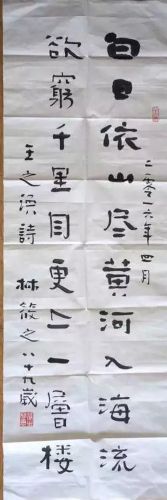 白日依山尽黄河入海流
欲窮千里目更上一層楼
二零一六年四月
王之渙詩 林筱之八十九歲